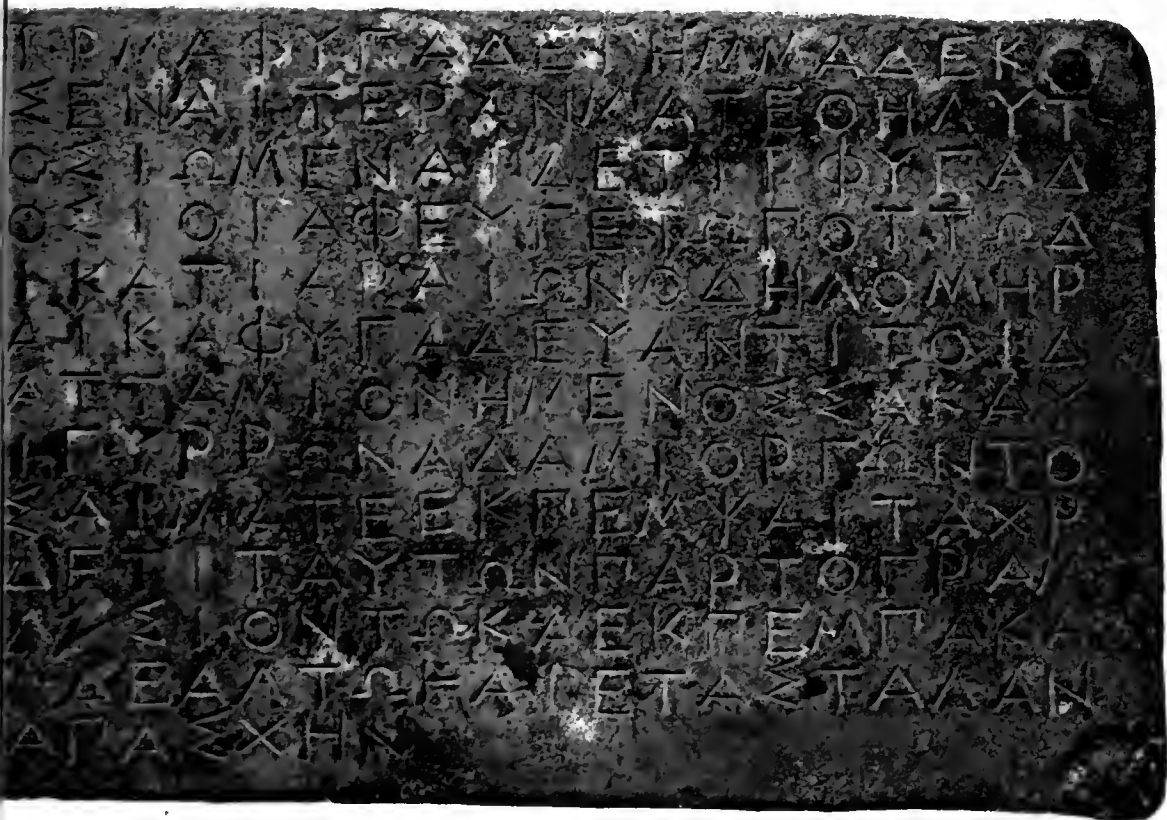 ΙΡΜΑΦΥΓΑΔΕΙΗΜΜΑΔΕΚΟ
ΣΕΝΑΙΤΕΡΑΝΜΑΤΕΘΗΛΥΤ
ΟΣΙΩΜΕΝΑΙΔΕΤΙΡΦΥΓΑΔ
ΟΣΙΟΙΑΦΕΥΓΕΤΩΠΟΤΤΩΔ
ΙΚΑΤΙΑΡΑΙΩΝΟΔΗΛΟΜΗΡ
ΑΙΚΑΦΥΓΑΔΕΥΑΝΤΙΤΟΙΔ
ΑΤΤΑΜΙΟΝΗΜΕΝΟΣΣΑΚΑΥ
ΙΠΥΡΡΩΝΑΔΑΜΙΟΡΓΩΝΤΟ
ΣΑΙΜΑΤΕΕΚΠΕΜΨΑΙΤΑΧΡ
ΔΕΤΙΤΑΥΤΩΝΠΑΡΤΟΓΡΑΜ
ΑΣΙΟΝΤΩΚΑΕΚΠΕΜΠΑΚΑ
ΑΔΕΑΛΤΩΕΑΙΕΤΑΣΤΑΛΑΝ
ΑΠΑΣΧΗΝ